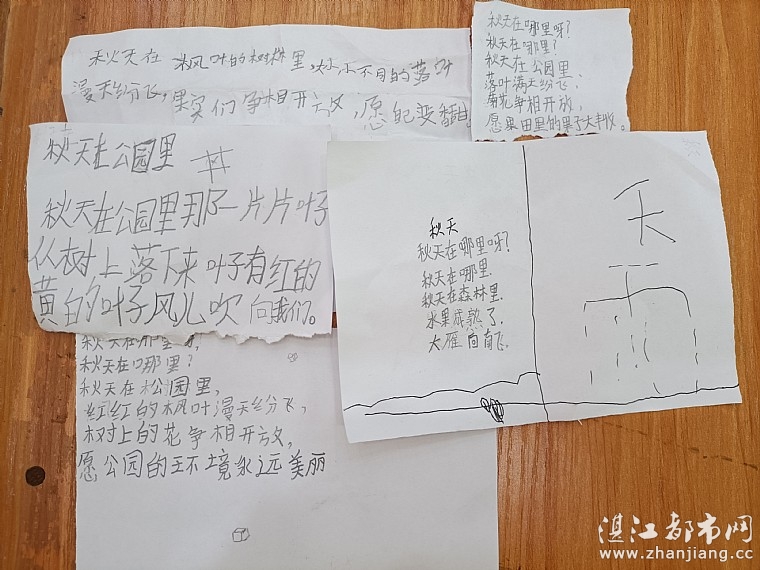 秋天在 枫叶的树林里,大小不同的落叶
漫天纷飞,果实们争相开放,愿
秋天在哪里呀?
秋天在哪里?
秋天在公园里
落叶满天纷飞,
菊花争相开放,
愿果田里的果子大丰收。
秋天在公园里
秋天在公园里那一片片叶子
从树上落下来叶子有红的
黄的叶子风儿吹向我们。
秋天
秋天在哪里呀?
秋天在哪里.
秋天在森林里.
水果成熟了.
大雁向南飞.
秋天在哪里呀,
秋天在哪里?
秋天在公园里,
红红的枫叶漫天纷飞,
树上的花争相开放,
愿公园的环境永远美丽
湛江都市网
www.zhanjiang.cc